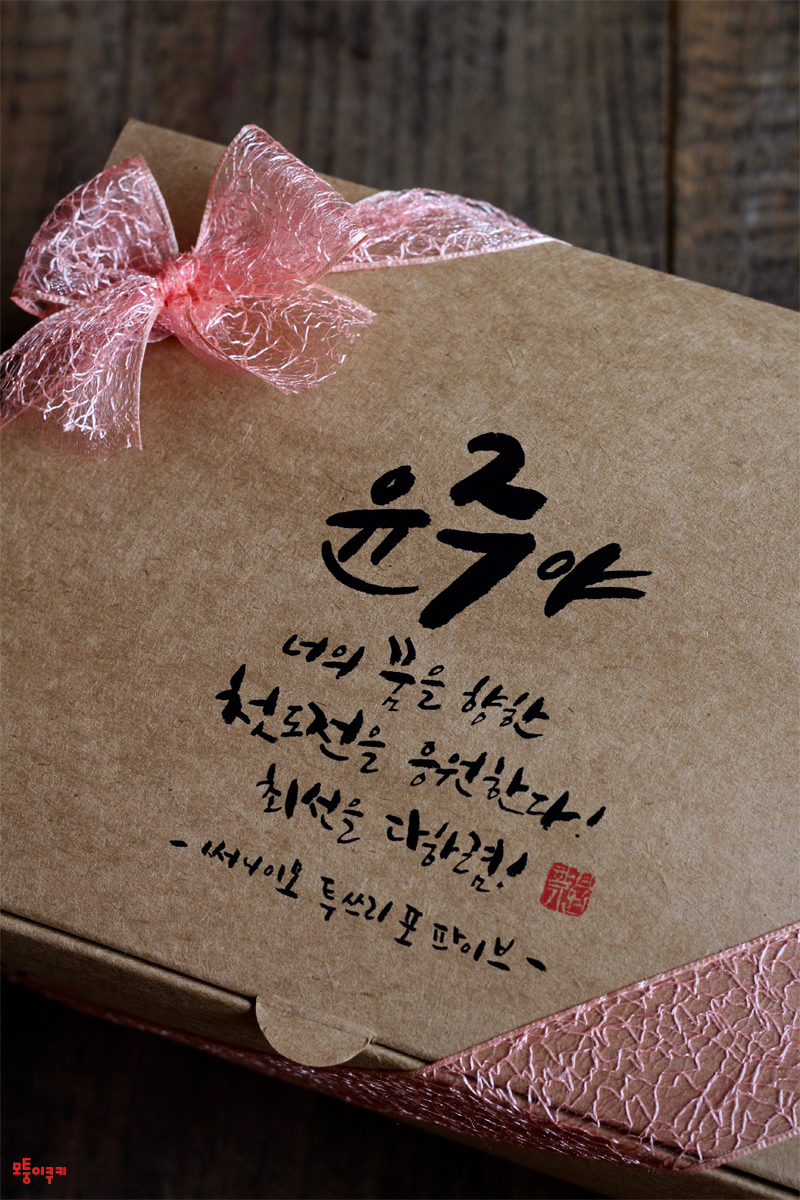 윤주야
너의 꿈을 향한
첫도전을 응원한다!
최선을 다하렴!
- 써니이모 투쓰리 포 파이브 -
모퉁이쿠키